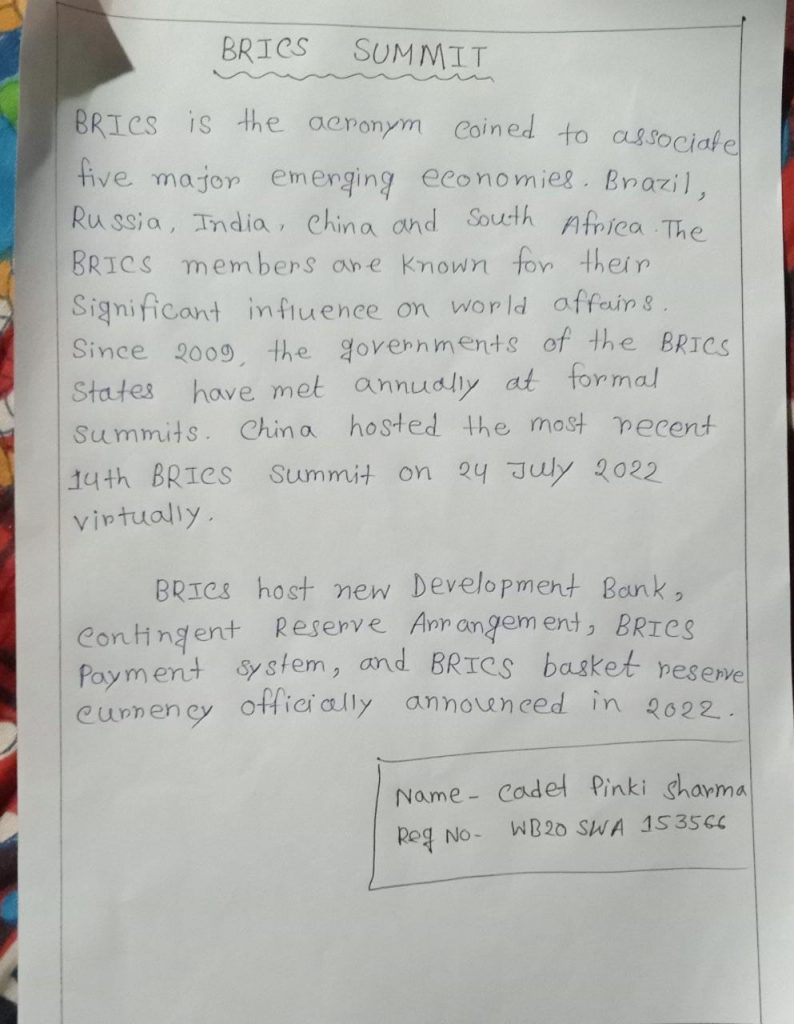 BRICS SUMMIT
BRICS is the acronym coined to associate
five major emerging economies. Brazil,
Russia, India, China and South Africa. The
BRICS members are known for their
Significant influence on world affairs.
Since 2009, the governments of the BRICS
States have met annually at formal
summits. China hosted the most recent
14th BRICS Summit on 24 July 2022
virtually.
BRICS host new Development Bank,
Contingent Reserve Arrangement, BRICS
Payment system, and BRICS basket reserve
currency officially announced in 2022.
Name - Cadet Pinki Sharma
Reg No - WB20 SWA 153566